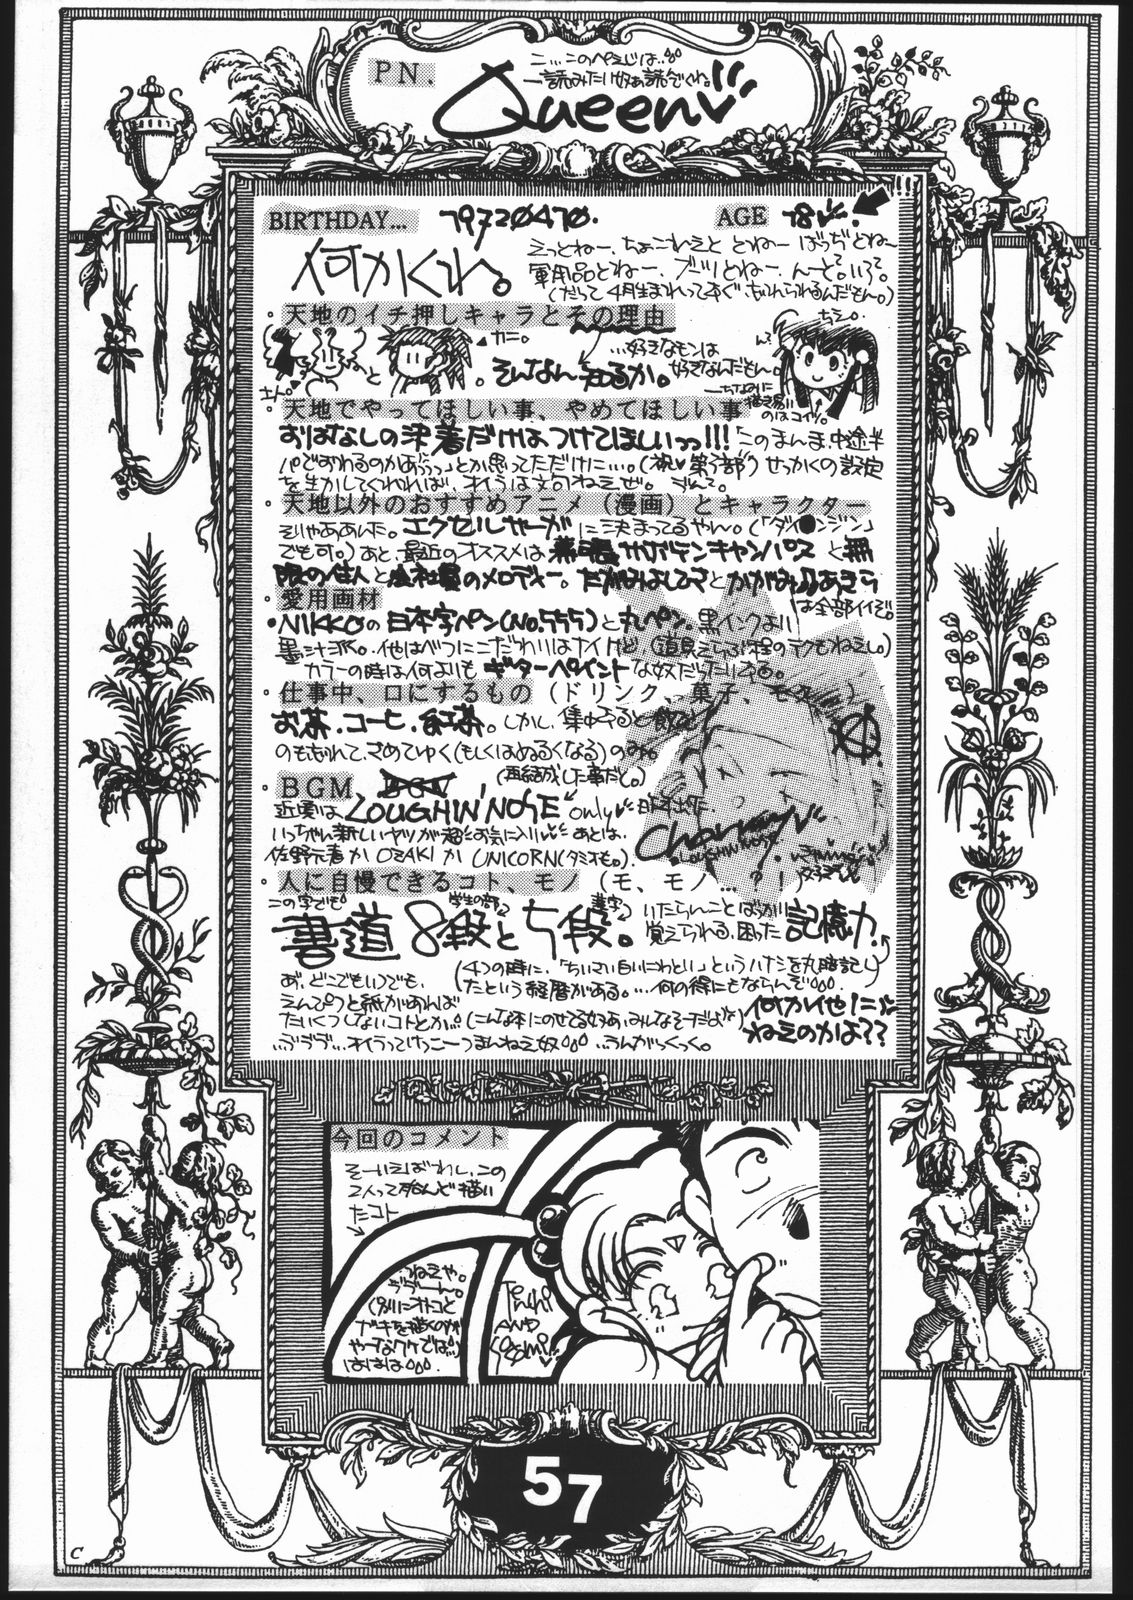 PN.
こ…このぺえじは…
読みたい奴ぁ読んでくれ。
Queen
BIRTHDAY… 19720410.
AGE 18
何かくれ。
えっとねー、ちょこれえと とねー ばっぢとねー
軍用品とねー、ブーツとねー、んーと。いろいろ
(だって4月生まれってすぐ、忘れられるんだもん。)
・天地のイチ押しキャラとその理由
カニ。
と
そんなん知るか。
…好きなモンは
好きなんだもん。
ちなみに
描き易い
のはコイツ。
・天地でやってほしい事、やめてほしい事
おはなしの決着だけはつけてほしいっっ!!!「このまんま、中途半
パでおわるのかあぅぅっ」とか思ってただけに…。(祝♥第3部)せっかくの設定
を生かしてくれれば、オイラは文句ねえぜ。
・天地以外のおすすめアニメ（漫画）とキャラクター
そりゃああんた。エクセルサーガに決まってるやん。(「ダイ●ンジン」
でも可。)あと、最近のオススメは サボテンキャンパスと無
限の住人と会社員のメロディー。
は全部イイぞ。
・愛用画材
・NIKKOの日本字ペン(No.555)と丸ペン。黒インクより
墨汁派。他はべつにこだわりはナイけど、(道具えらぶ程のテクもねえし)
カラーの時は何より ギターペイント な奴だったりする。
・仕事中、口にするもの（ドリンク、菓子、モク…）
お茶、コーヒ、紅茶。しかし、集中すると飲む
のも忘れて、さめてゆく(もしくはぬるくなる)のみ。
・BGM
(再結成した事だし。)
近頃は、LOUGHIN'NOSE only
いっちゃん新しいヤツが超お気に入り あとは、
佐野元春か OZAKI か UNICORN(タミオも)。
LOUGHIN NOSE
・人に自慢できるコト、モノ（モ、モノ…？！）
この字でも
書道 8段と5段。
学生の部
漢字
いたらんことばっかり
覚えてられる、困った 記憶力
(4つの時に、「ちいさい白いにわとり」というハナシを丸暗記し
たという経歴がある。…何の得にもならんぞ
あ、どこでもいつでも、
えんぴつと紙があれば
たいくつしないコトとか。(こんな本にのせてる奴ぁ、みんなそーだよ)
何か他に
ねえのかよ??
つまんねえ奴
今回のコメント
そーいえばわし、この
2人って殆んど描い
たコト
ねえや。
(別にオトコと
ガキを描くのが
やーなワケでは
ははは
AND
57
C